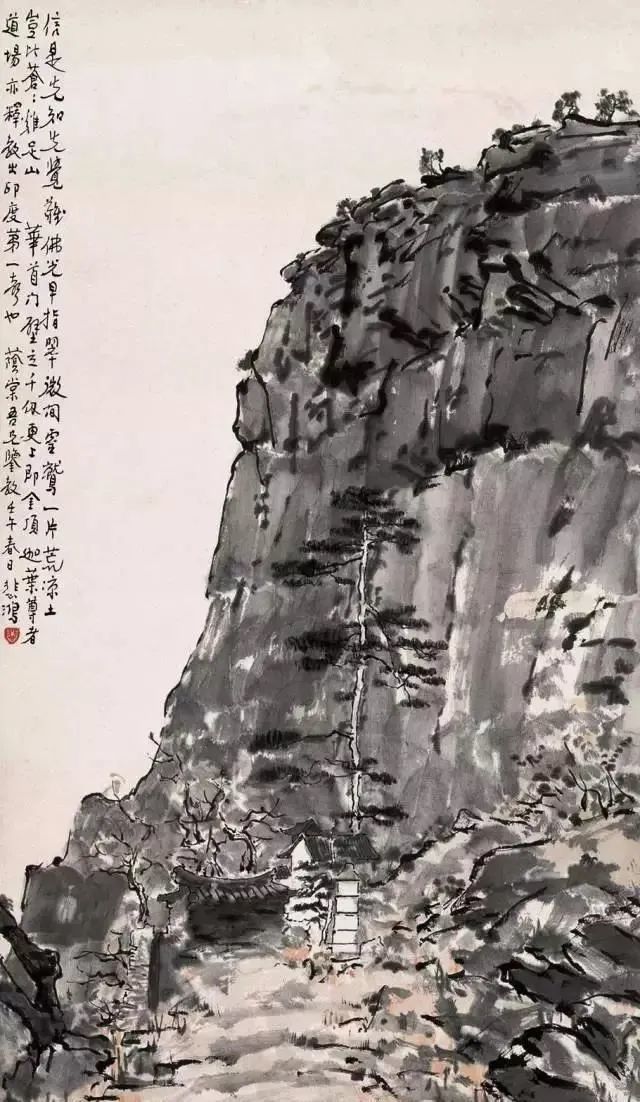 信是先知先覺難佛光早指翠微間靈鷲一片荒涼土
豈比蒼〻雞足山 華首門壁立千仞更上即金頂迦葉尊者
道場亦釋教出印度第一也 蔭棠吾兄鑒教壬午春日悲鴻